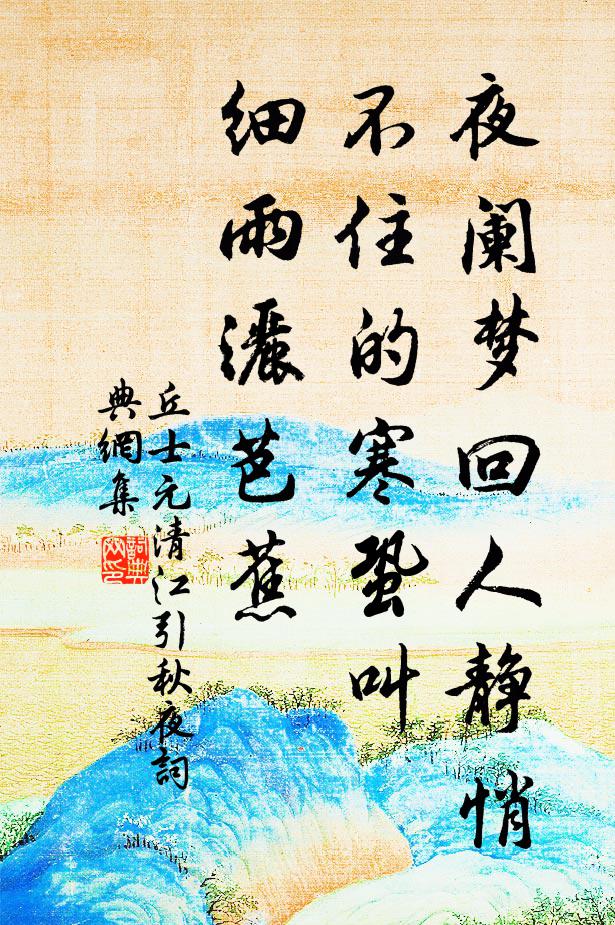 夜阑梦回人静悄
不住的寒蛩叫
细雨灑芭蕉
丘士元清江引秋夜詞
典網集
詞典
网印